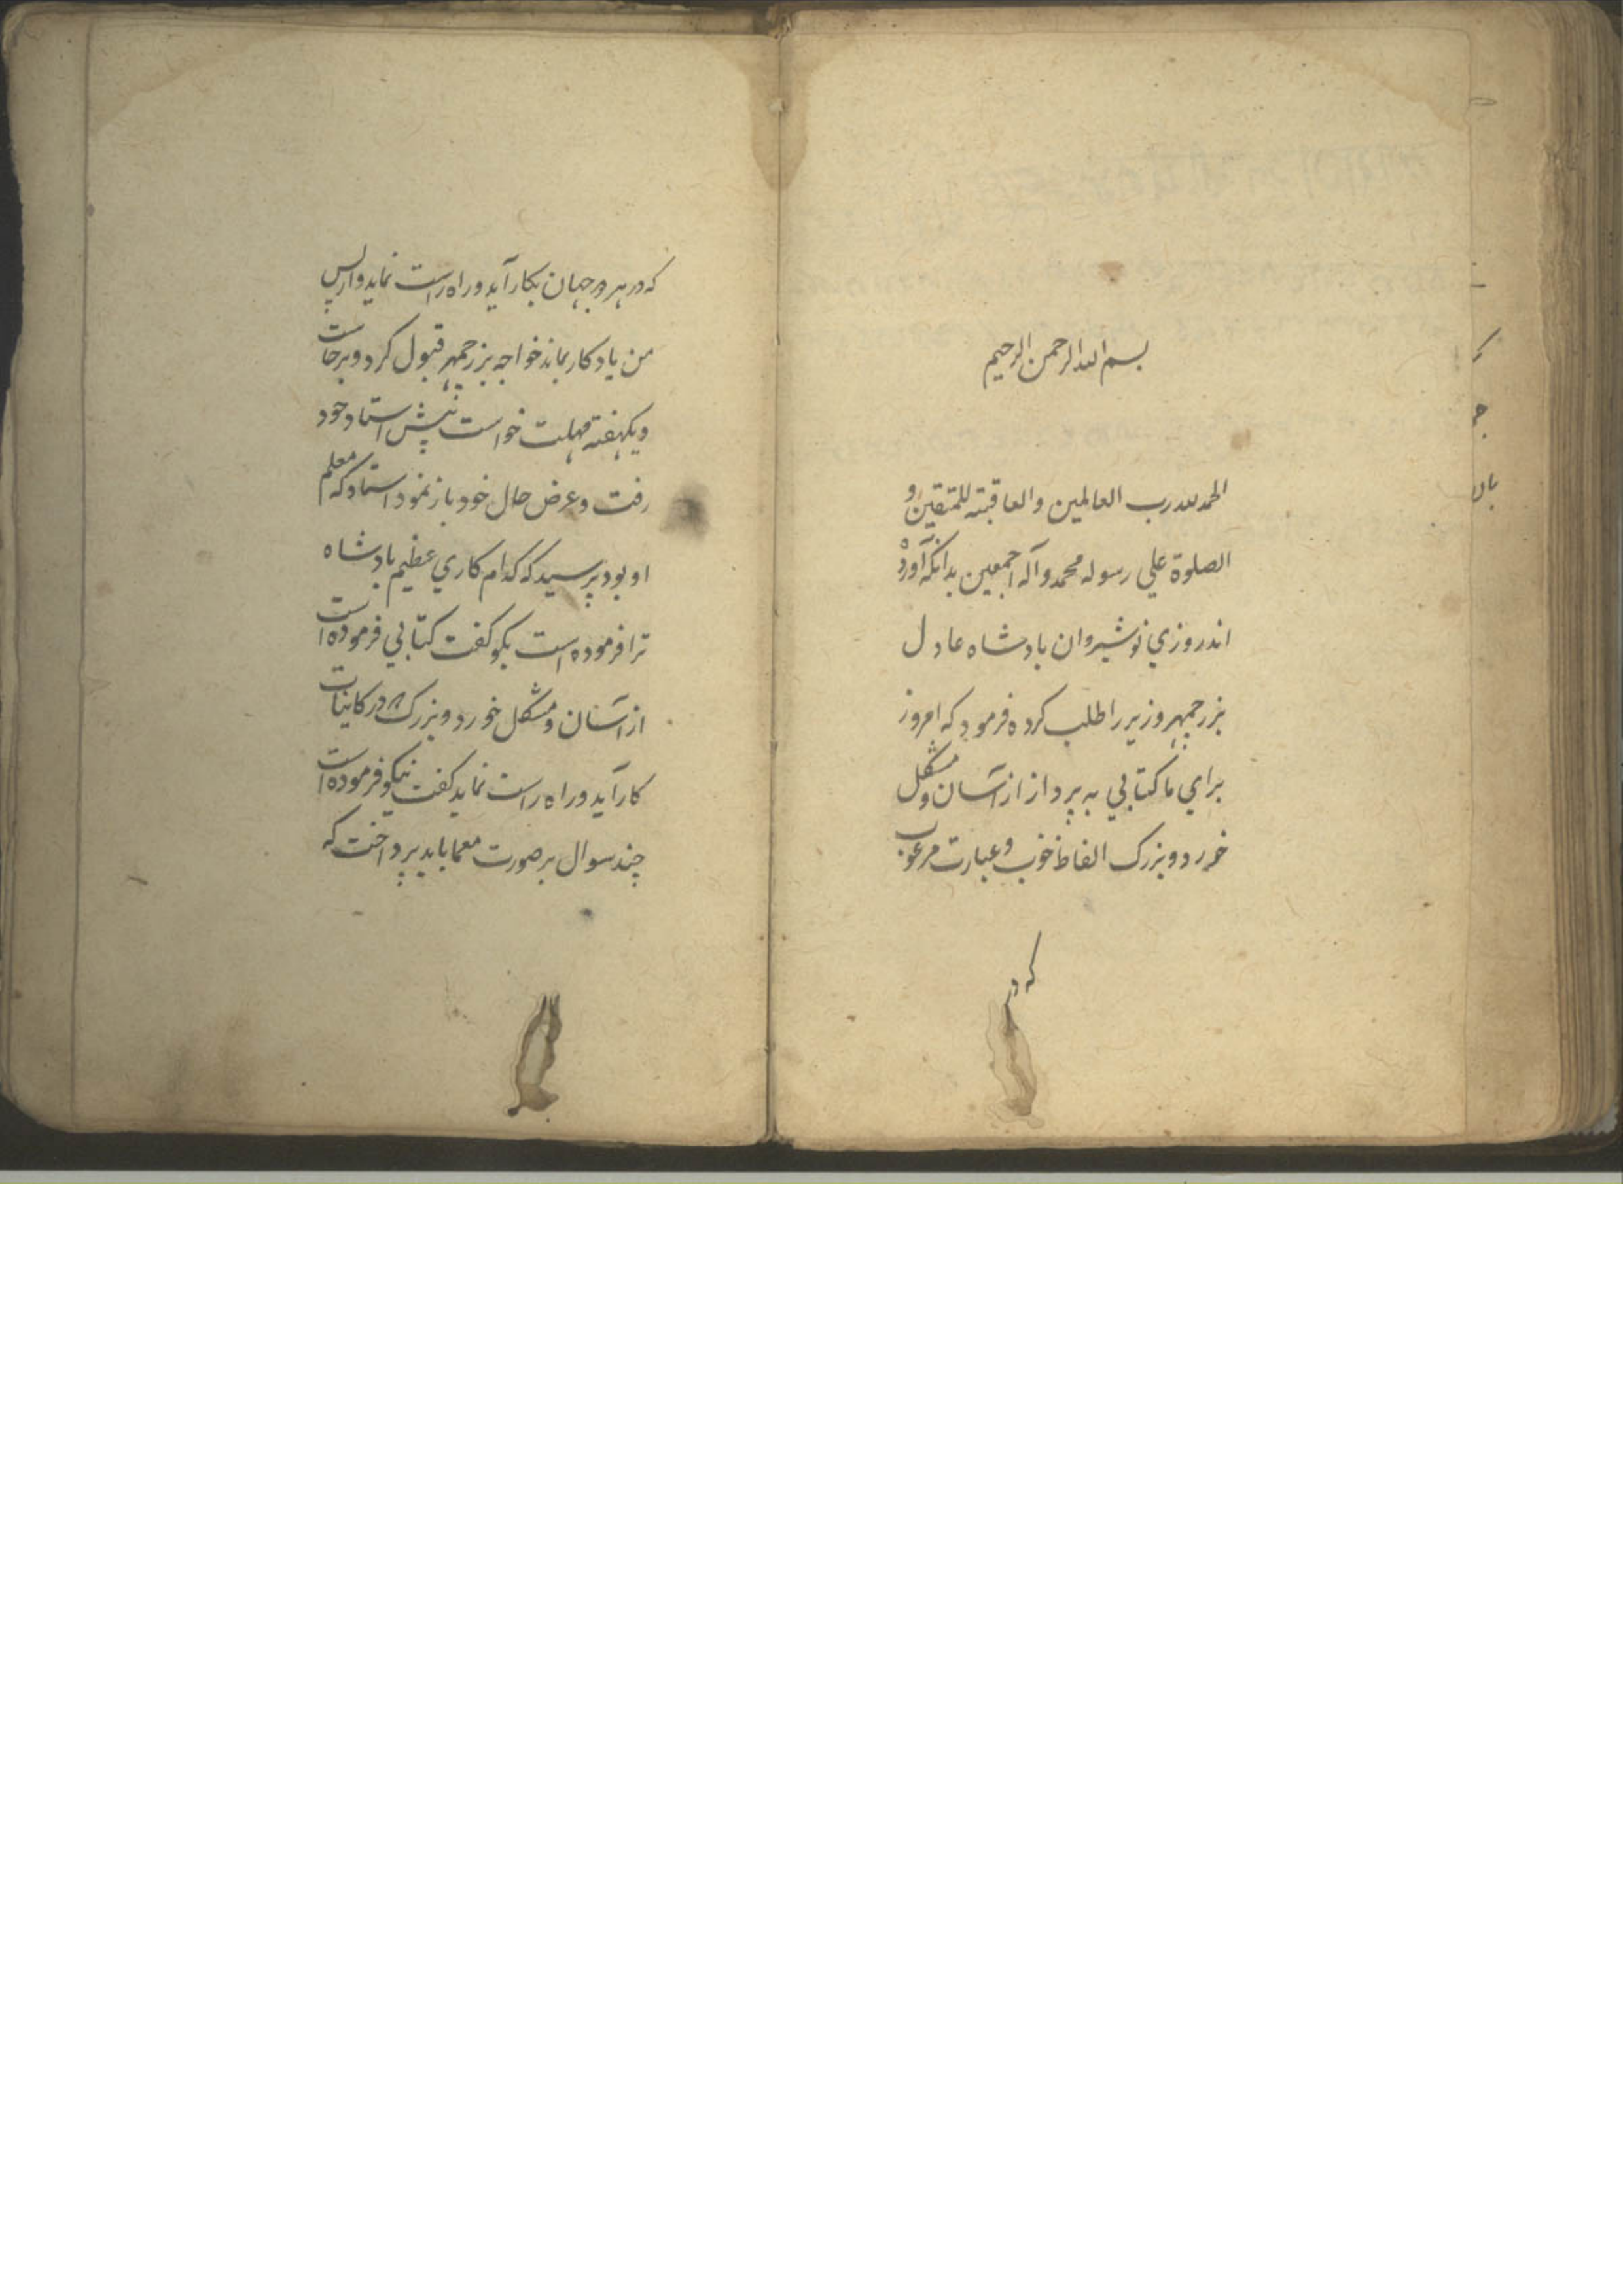 بسم الله الرحمن الرحیم
الحمد لله رب العالمین والعاقبة للمتقین و
الصلوة علي رسوله محمد وآله اجمعین بدانکه آورده
اند روزي نوشیروان بادشاه عادل
بزرجمهر وزیر را طلب کرده فرمود که امروز
براي ما کتابي به پرداز از آسان و مشکل
خورد و بزرک الفاظ خوب و عبارت مرغوب
که در
که در هر دو جهان بکار آید و راه راست نماید و از پس
من یادکار بماند خواجه بزرجمهر قبول کرد و برخاست
و یکهفته مهلت خواست پیش استاد خود
رفت و عرض حال خود باز نمود استاد که معلم
او بود پرسید که کدام کاري عظیم بادشاه
ترا فرموده است بکو کفت کتابي فرموده است
از آسان و مشکل خورد و بزرک در کاینات
کار آید و راه راست نماید کفت نیکو فرموده است
چند سوال بر صورت معما باید پرداخت که